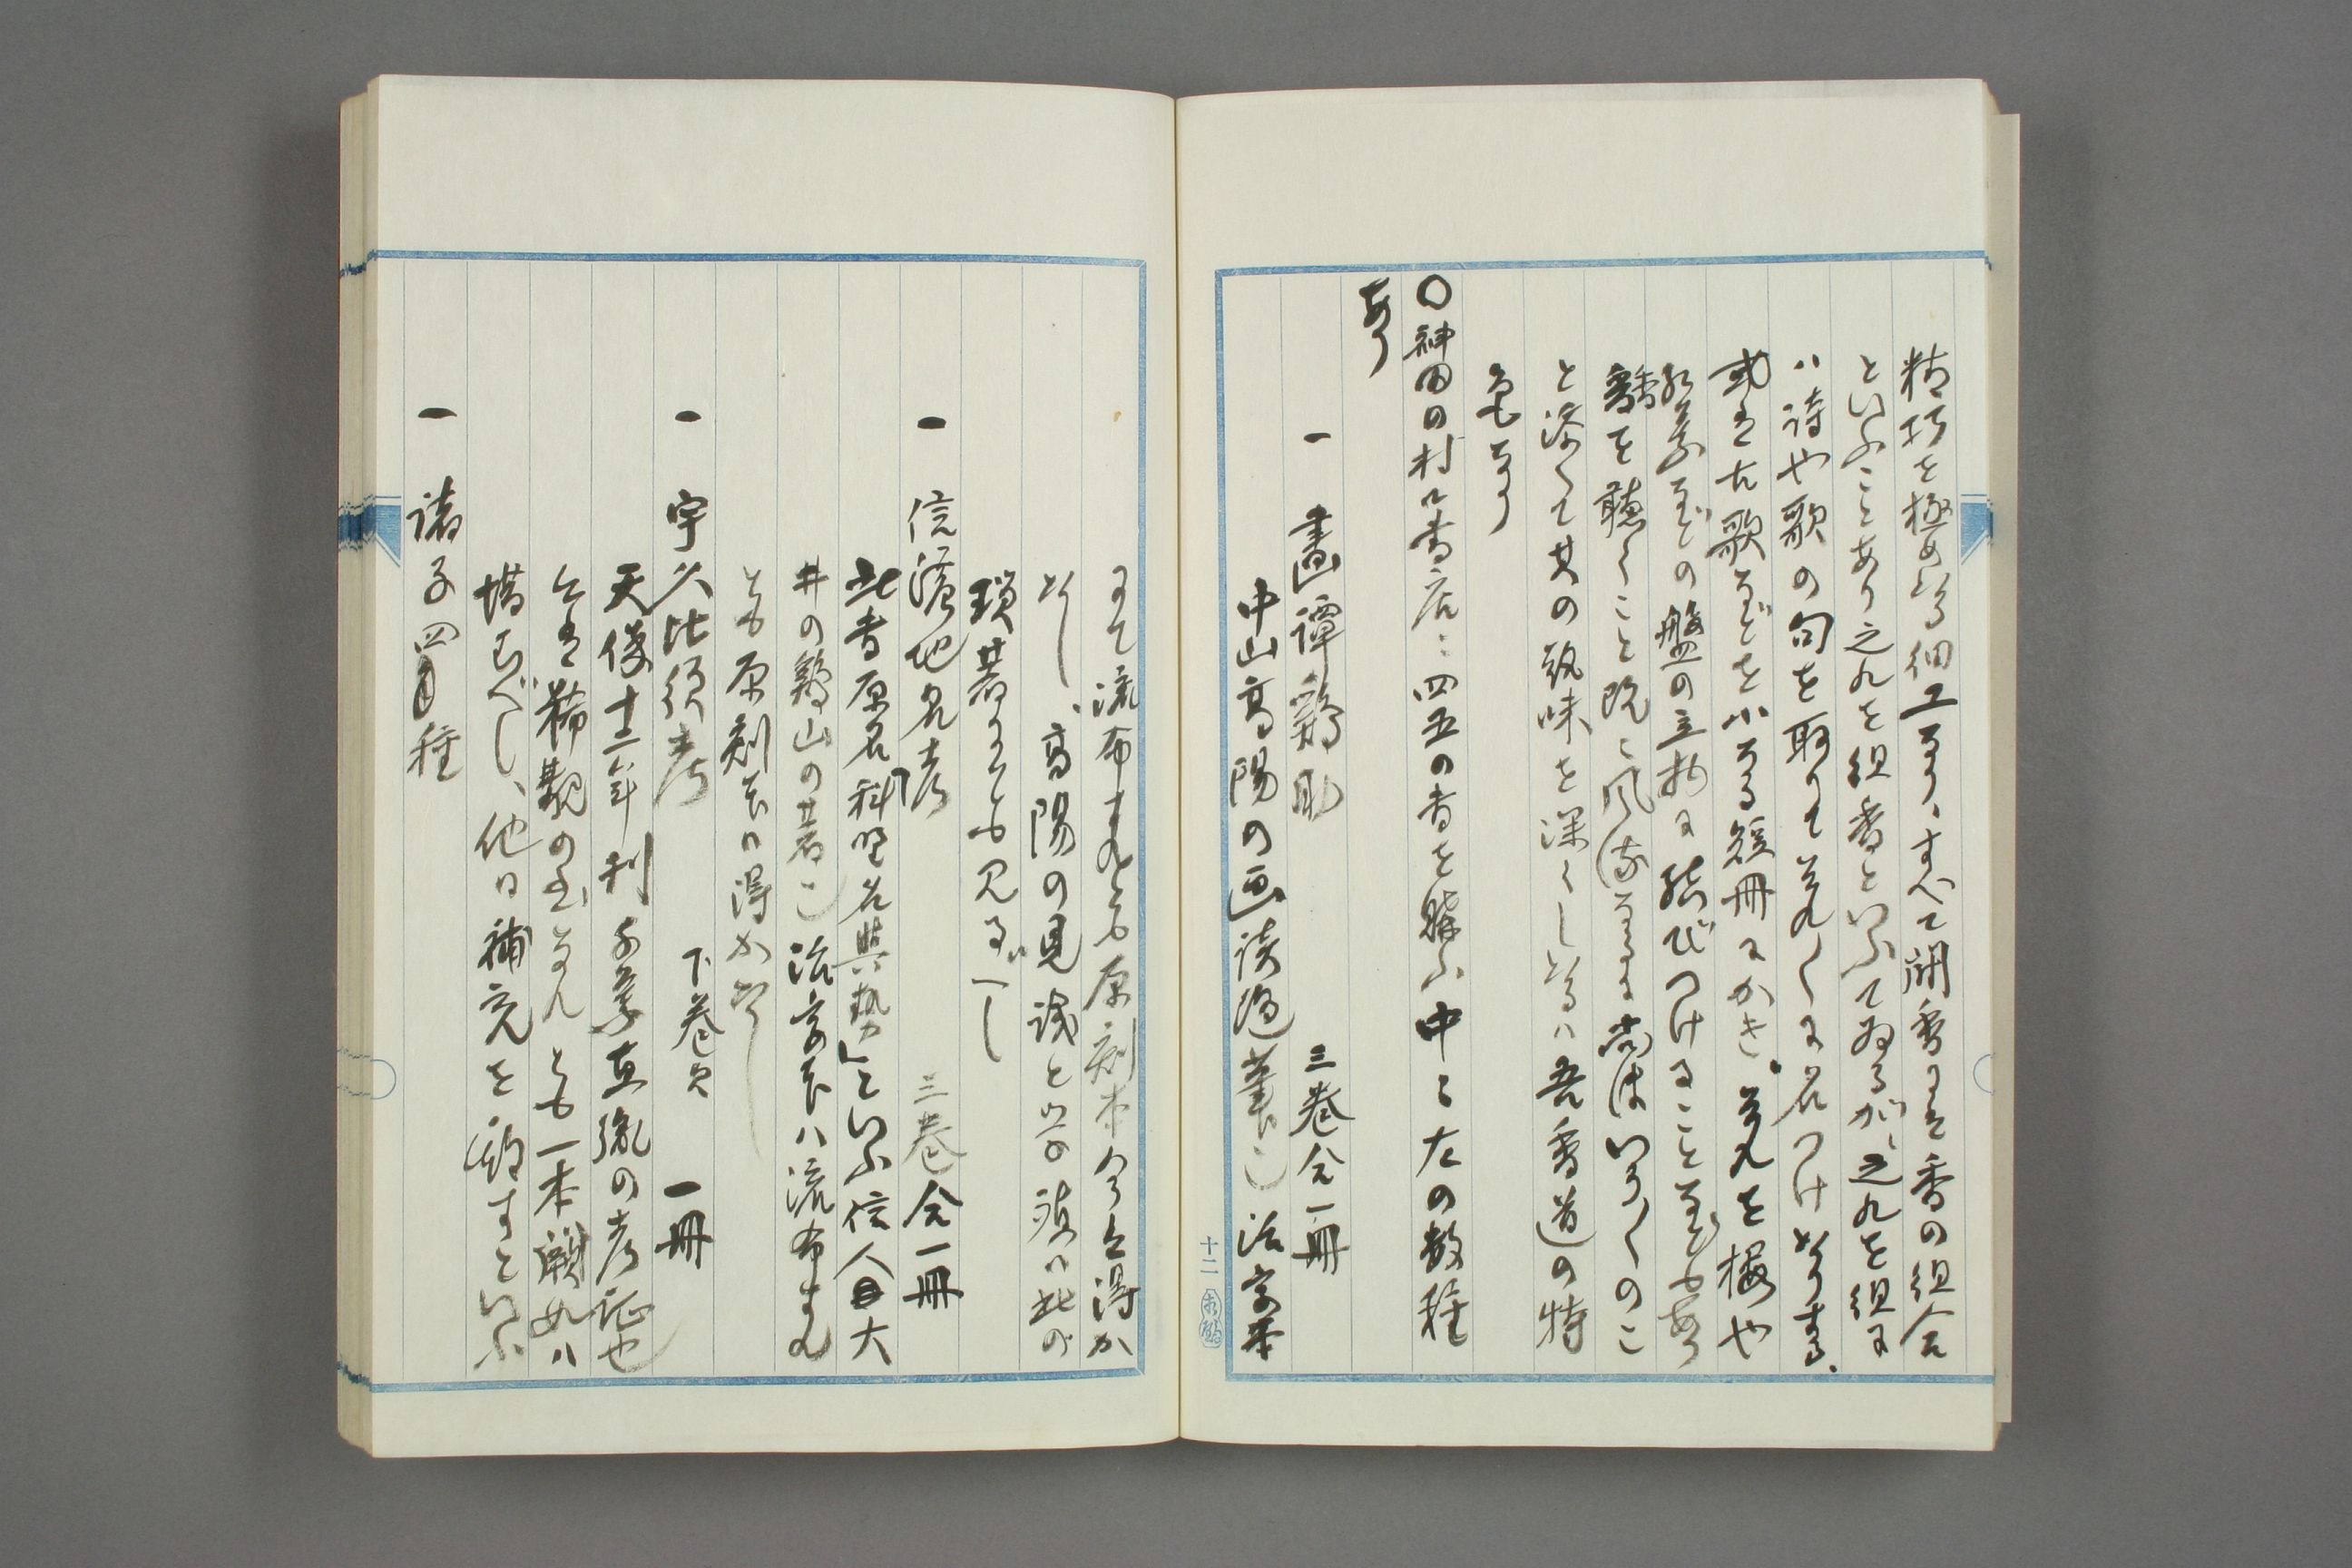 精巧を極めたる細工なり、すべて聞香には香の組合
といふことあり之れを組香といふてゐるが、之れを組に
ハ詩や歌の句を取りてそれ〱に名つけたりする、
或は古歌などを小なる短冊にかき、それを桜や
紅葉などの盤の立物に結びつけることなどもあり
香を聴くこと既に風流なるに尚ほいろ〱のこ
と添へて其の趣味を深くしたるハ吾香道の特
色なり
〇神田の村口書店に四五の書を購ふ中に左の数種
あり
一 画譚鶏肋 三巻合一冊
中山高陽の画談随筆に活字本
にて流布すれとも原刻本今は得か
たし、高陽の見識と学殖ハ此の
瑣著にても見るべし
一 信濃地名考 三巻合一冊
此書原名科野名与勢といふ信人大
井の の著に活字本ハ流布すれ
とも原刻本ハ得かたし
一 宇比須考 下巻欠 一冊
天保十二年刊 千葉 の考証也
今は稀覯の書なれとも一本闕如ハ
惜むべし、他日補充を期すといふ
一 諸子四種
十二